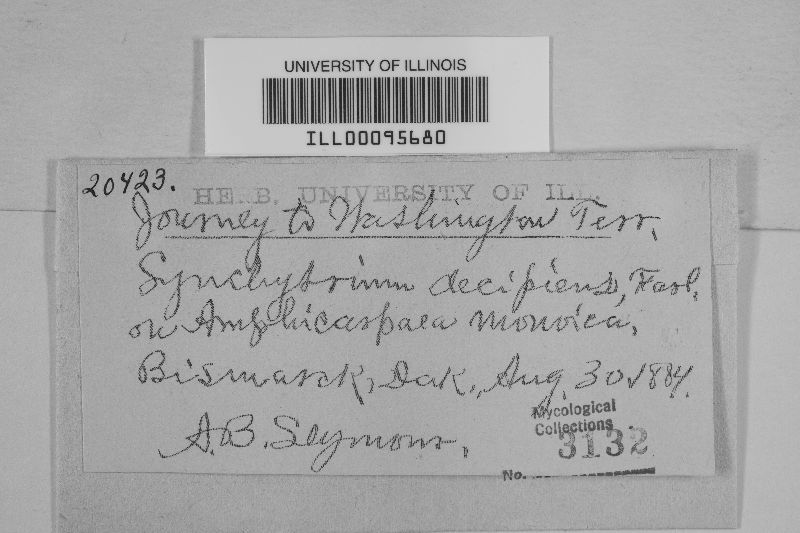 UNIVERSITY OF ILLINOIS
ILL00095680
20423.
HERB. UNIVERSITY OF ILL.
Journey to Washington Terr.
Synchytrium decipiens, Farl.
on Amphicarpaea monoica,
Bismarck, Dak., Aug. 30, 1884.
A. B. Seymour.
Mycological
Collections
3132
No.